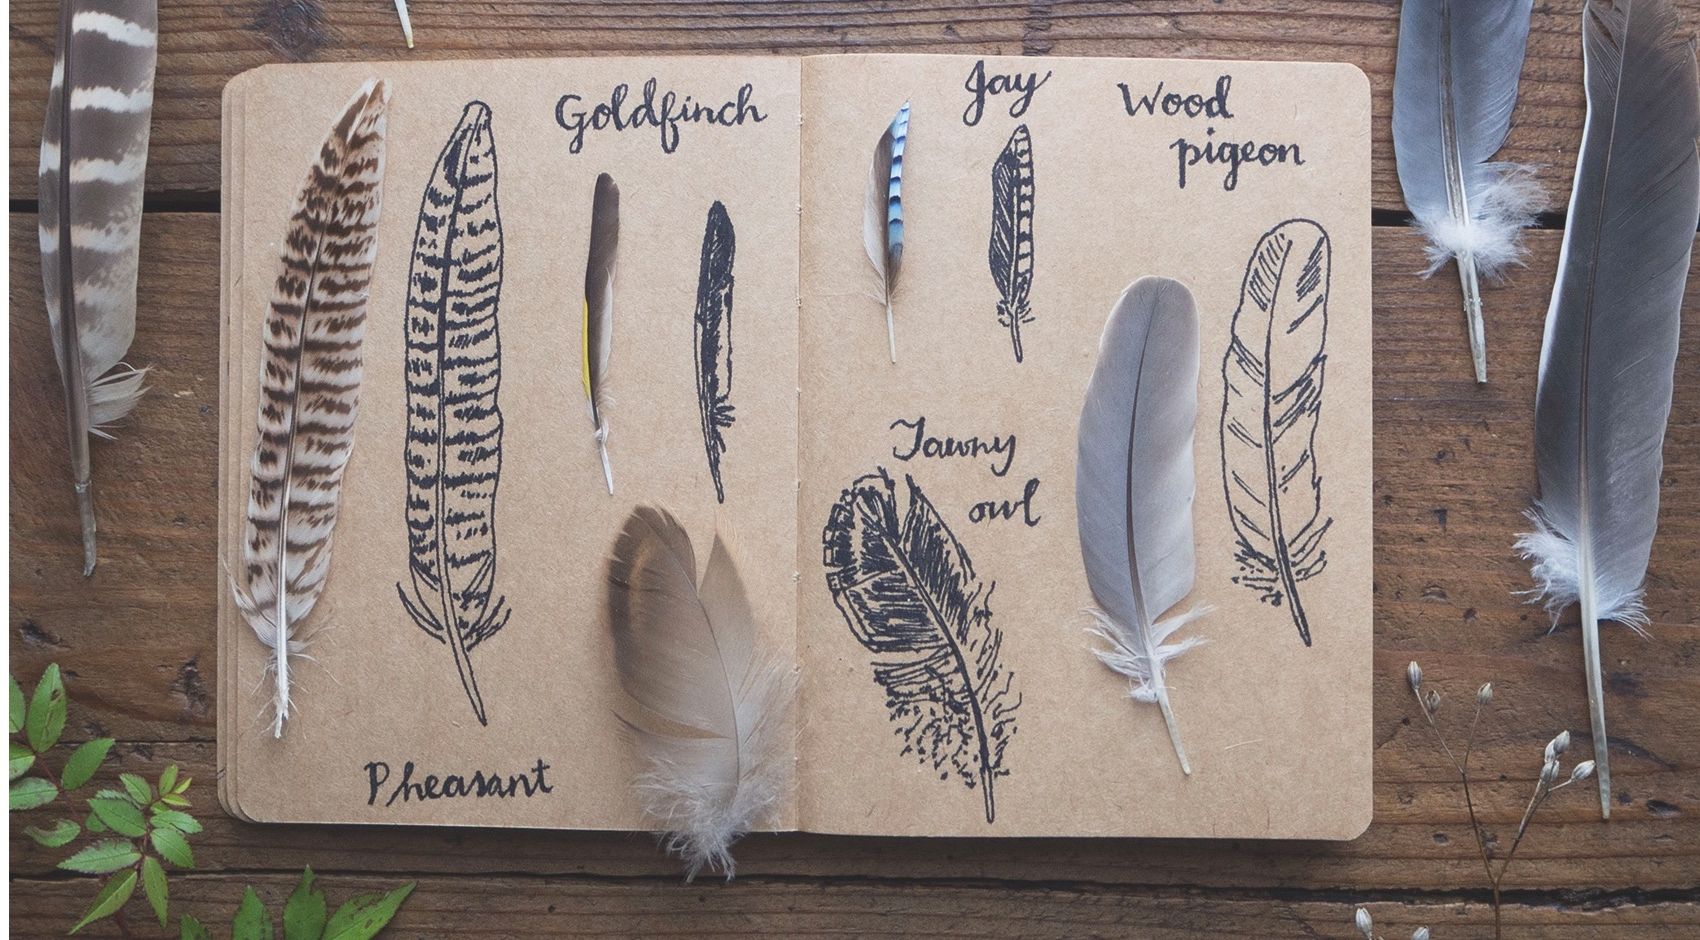 Goldfinch
Pheasant
Jay
Wood
pigeon
Tawny
owl